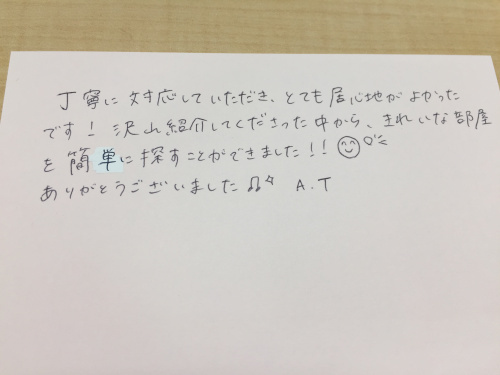 丁寧に対応していただき、とても居心地がよかった
です！沢山紹介してくださった中から、きれいな部屋
を簡単に探すことができました!!
ありがとうございました♫ A.T